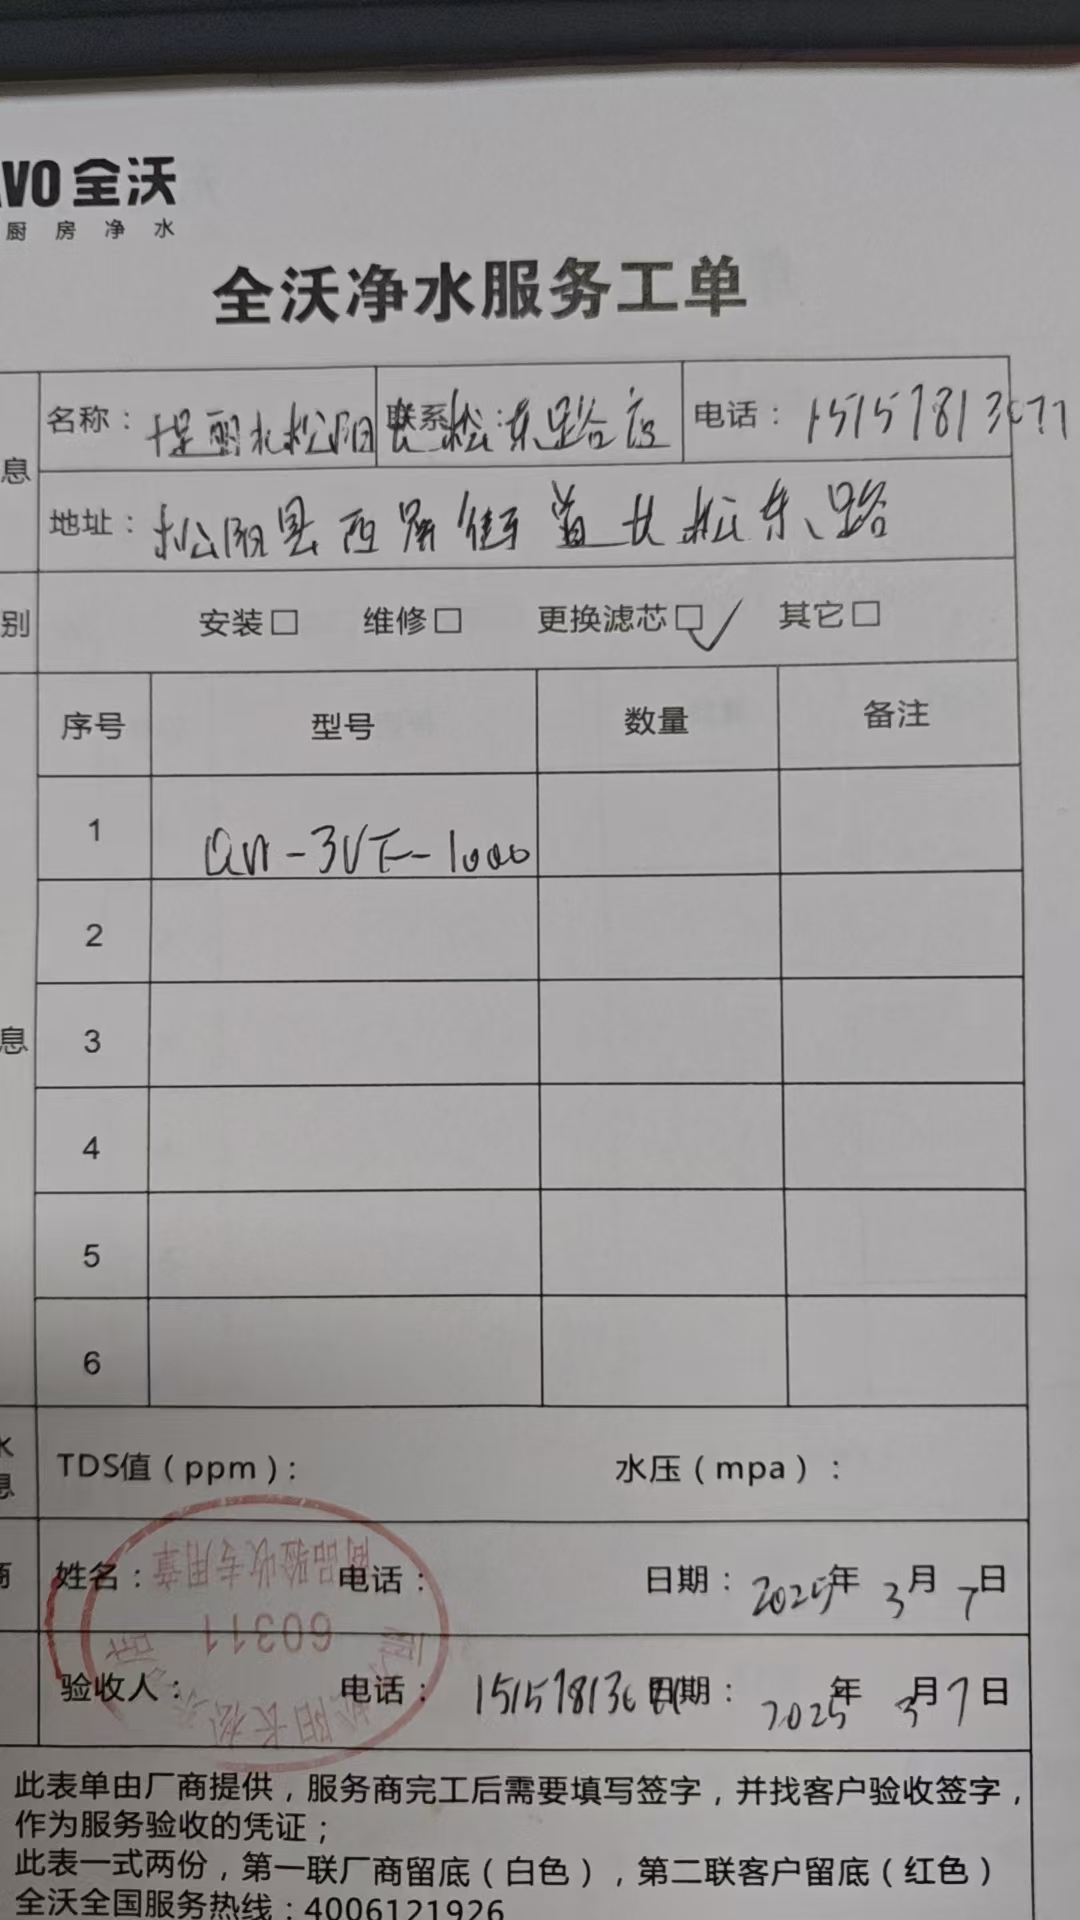 VO 全沃
厨房净水
全沃净水服务工单
息
名称: 堤丽水松阳长松东路店 联系 : 电话: 15157813
地址: 松阳县西屏街道长松东路
别 安装□ 维修□ 更换滤芯□✓ 其它□
序号 型号 数量 备注
1 QW-3VF-1000
2
3
息
4
5
6
水
息
TDS值(ppm): 水压(mpa):
商
姓名: 电话: 日期: 2025年3月7日
验收人: 电话: 15157813 日期: 2025年3月7日
商品验收专用章
60311
松阳长松 路 店
此表单由厂商提供,服务商完工后需要填写签字,并找客户验收签字,
作为服务验收的凭证;
此表一式两份,第一联厂商留底(白色),第二联客户留底(红色)
全沃全国服务热线:4006121926